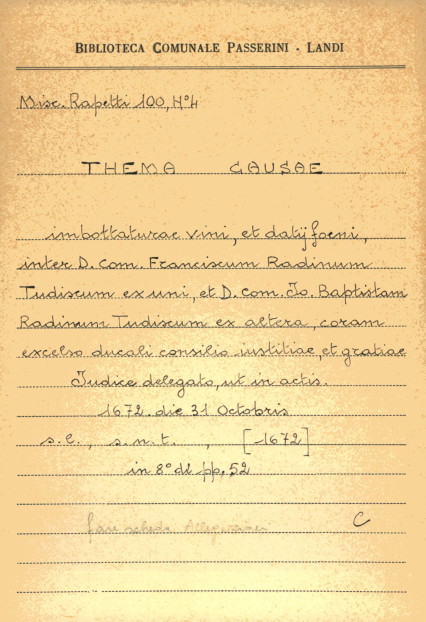 BIBLIOTECA COMUNALE PASSERINI - LANDI
Misc. Rapetti 100, N°4
THEMA CAUSAE
imbottaturae vini, et datij foeni,
inter D. Com. Franciscum Radinum
Tudiscum ex uni, et D. Com. Jo. Baptistam
Radinum Tudiscum ex altera, coram
excelso ducali consilio iustitiae, et gratiae
Judice delegato, ut in actis.
1672. die 31 Octobris
s.l., s.n.t., [1672]
in 8° di pp. 52
fare scheda
C